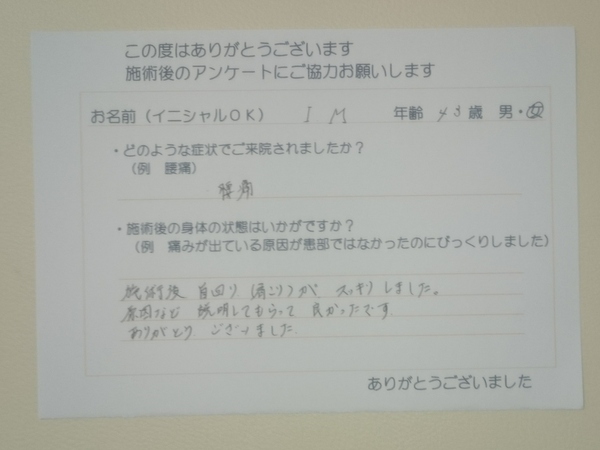 この度はありがとうございます
施術後のアンケートにご協力お願いします
お名前（イニシャルOK） I M 年齢 43歳 男・女
・どのような症状でご来院されましたか？
（例 腰痛）
腰痛
・施術後の身体の状態はいかがですか？
（例 痛みが出ている原因が患部ではなかったのにびっくりしました）
施術後 首回り（肩こり）が スッキリしました。
原因など 説明してもらって 良かったです
ありがとう ございました
ありがとうございました